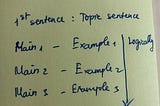 1st sentence : Topic sentence
Main 1 - Example 1
Main 2 - Example 2
Main 3 - Example 3
Logically